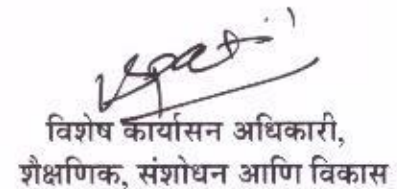 विशेष कार्यासन अधिकारी,
शैक्षणिक, संशोधन आणि विकास